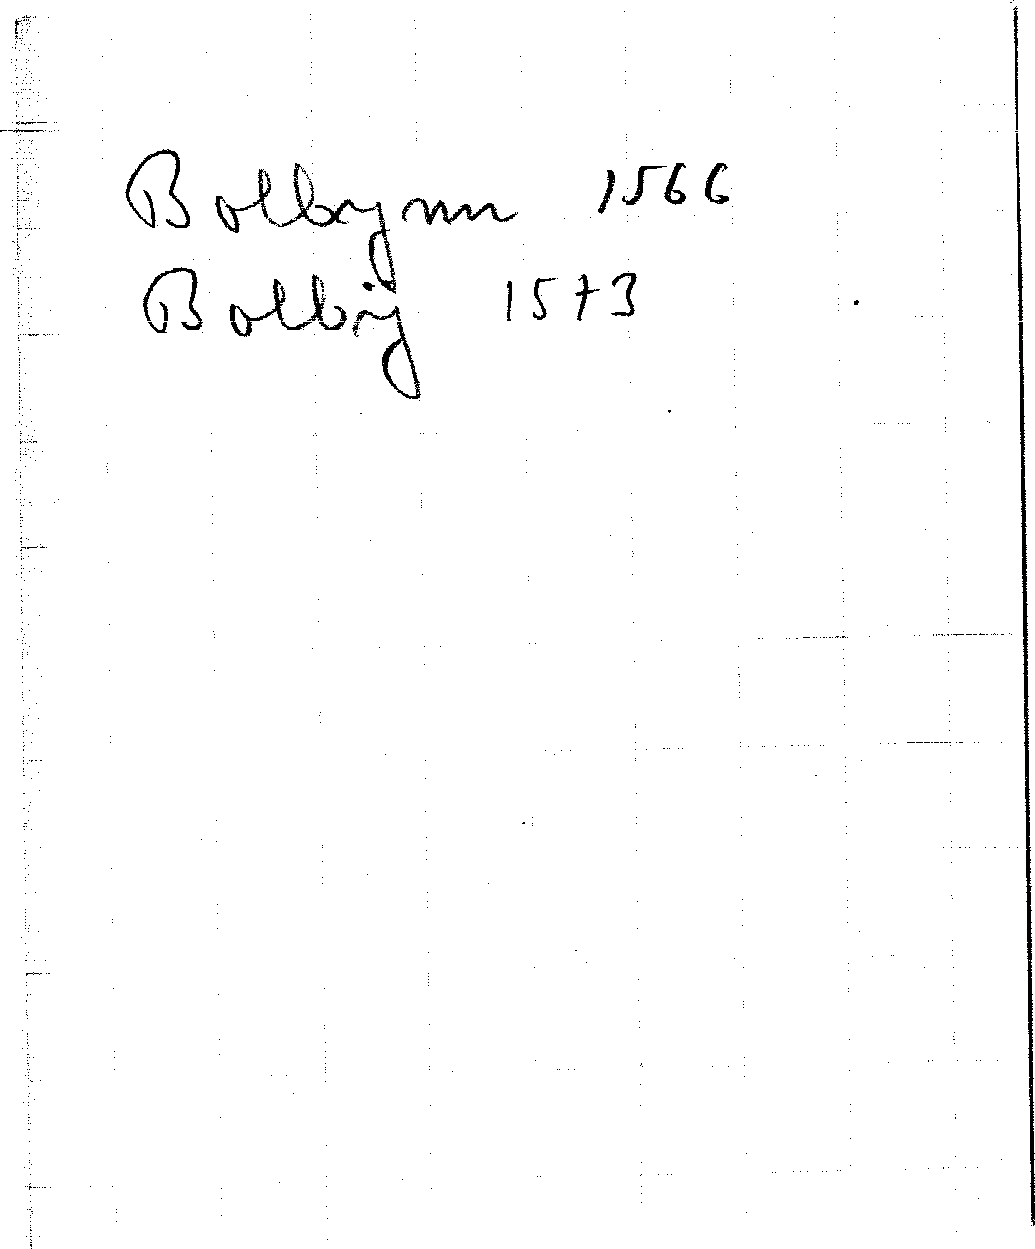 Bolbynn 1566
Bolbÿ 1573